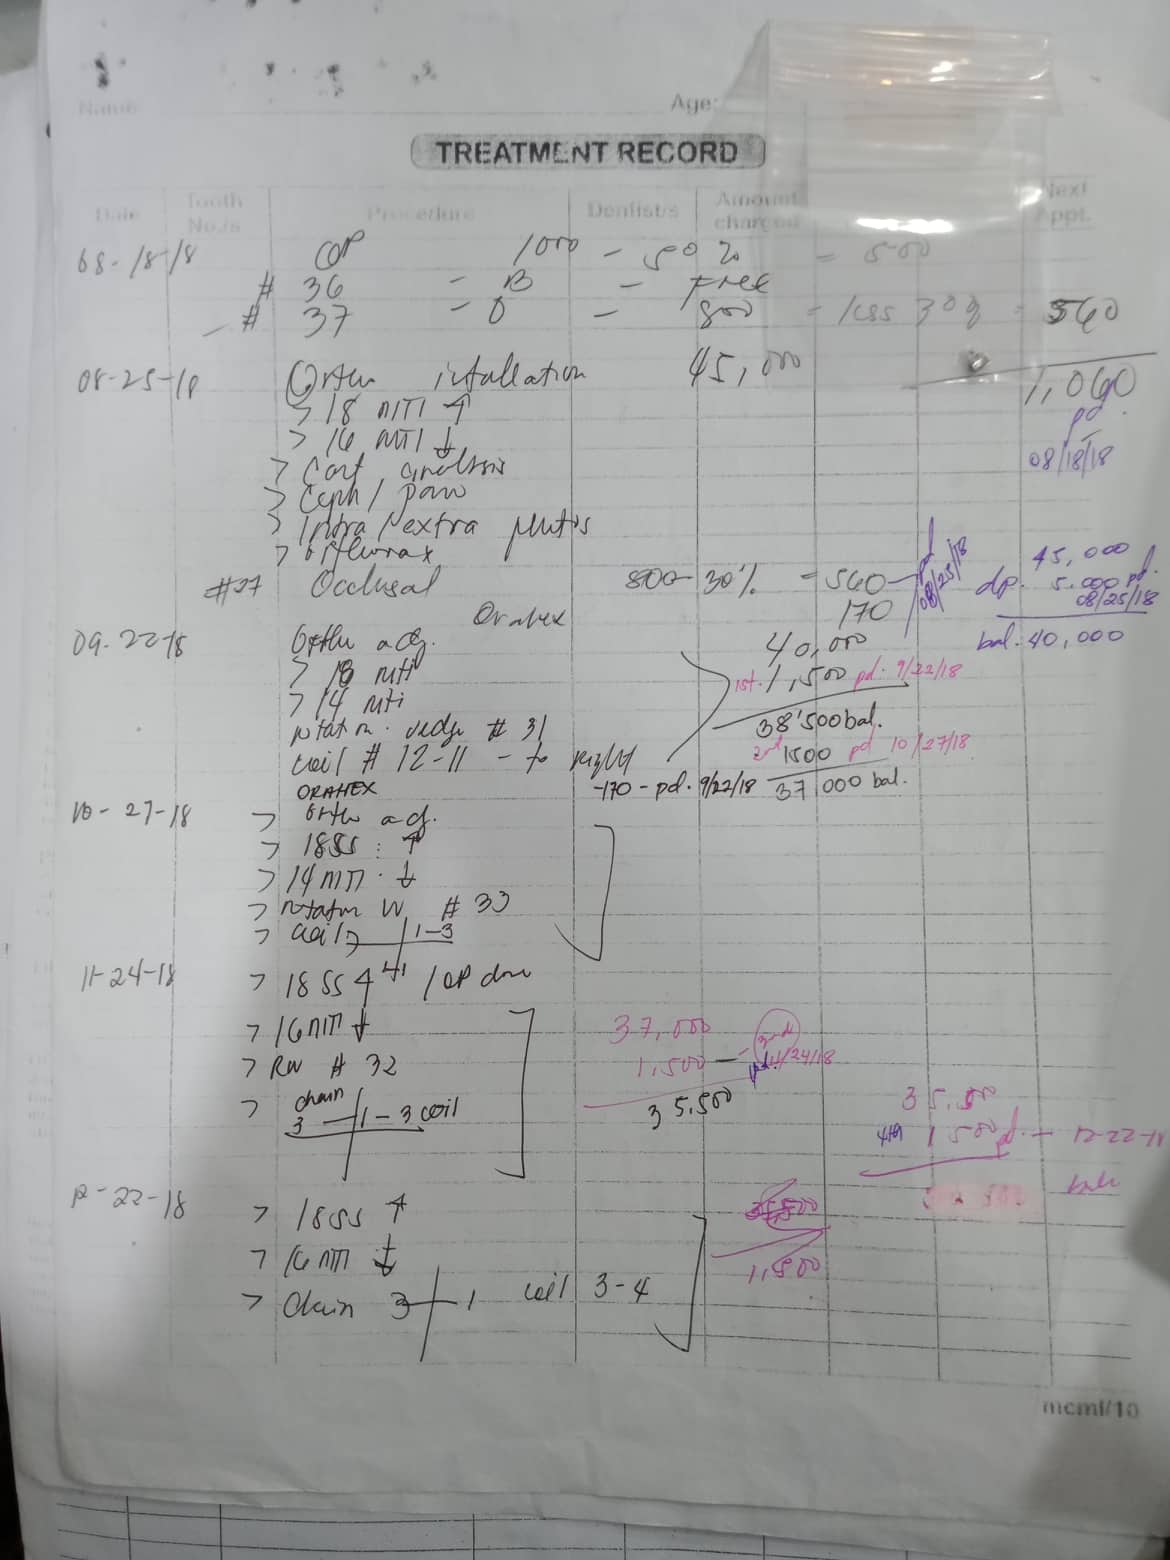 Name Age:
TREATMENT RECORD
Date Tooth No./s Procedure Dentist/s Amount charged Next Appt.
08-18-18 OP 1000 - 50% = 500
# 36 - B - Free
# 37 - O - 800 - less 30% = 560
1,060
pd.
08/18/18
08-25-18 Ortho installation 45,000
> 18 NITI ↑
> 16 NITI ↓
> Cast analysis
> Ceph / pano
> Intra/extra photos
#37 Occlusal 800 - 30% = 560 - pd 08/25/18
Orahex 170
45,000
dp. 5,000 pd. 08/25/18
bal. 40,000
09-22-18 Ortho adj. 40,000
> 18 niti 1st. 1,500 pd. 9/22/18
> 14 niti 38'500 bal.
rotation wedge # 31
coil # 12-11 - to right 2nd 1500 pd 10/27/18
ORAHEX -170 - pd. 9/22/18 37,000 bal.
10-27-18 > Ortho adj.
> 18SS ↑
> 14 NITI ↓
> rotation W # 33
> coil 1-3
11-24-18 > 18 SS / OP done
> 16 NITI ↓ 37,000
> RW # 32 1,500 - 3rd pd. 11/24/18
> chain 3 - 1 - 3 coil 35,500
35,500
4th 1500 pd. - 12-22-18
12-22-18 > 18SS ↑
> 16 NITI ↓ 1,500
> Chain 3 1 coil 3-4
mcml/10